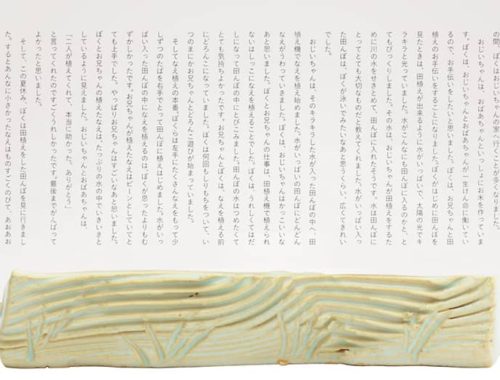 の間、ぼくはおじいちゃんの家へ行くことが多くなりました。
おじいちゃんは、おばあちゃんといっしょにお米を作っていま
す。ぼくは、おじいちゃんとおばあちゃんが一生けん命に働いてい
るので、お手伝いをしたいと思いました。ぼくは、お兄ちゃんと田
植えのお手伝いをすることになりました。ぼくがはじめに田んぼを
見たときは、田植えが出来るように水がいっぱいで、太陽の光でキ
ラキラと光っていました。水がこんなにも田んぼに入るのかと、と
てもびっくりしました。その水は、おじいちゃんが田植えをするた
めに川の水をせきとめて、田んぼに入れたそうです。水は田んぼに
とってとても大切なものだと教えてくれました。水がいっぱい入っ
た田んぼは、ぼくが泳いでみたいなあと思うくらい、広くてきれい
でした。
おじいちゃんは、そのキラキラした水が入った田んぼの中へ、田
植え機でなえを植え始めました。水がいっぱいの田んぼにどんどん
なえがうわっていきました。ぼくは、おじいちゃんはかっこいいな
あと思いました。ぼくとお兄ちゃんの仕事は、田植え機で植えられ
ないはしっこになえを植えることでした。ぼくは、うれしくてはだ
しになって田んぼの中にとびこみました。田んぼの水はつめたくて
とても気持ちよかったです。お兄ちゃんとぼくは、なえを植える前
にどろんこになっていました。ぼくは何回もしりもちをついて、い
つのまにかお兄ちゃんとどろんこ遊びが始まっていました。
そしてなえ植えの本番。ぼくらは左手にたくさんなえをもって少
しずつのたばを右手でとって田んぼに植えはじめました。水がいっ
ぱい入った田んぼの中になえを植えるのは、ぼくが思ったよりもむ
ずかしかったです。お兄ちゃんが植えたなえはピーンとしていてと
ても上手でした。やっぱりお兄ちゃんはすごいなあと思いました。
ぼくとお兄ちゃんの植えたなえは、たっぷりの水の中でいきいきと
しているように見えました。おじいちゃんとおばあちゃんは、
「二人が植えてくれて、本当に助かった。ありがとう。」
と言ってくれたのですごくうれしかったです。最後までがんばって
よかったと思いました。
そして、この夏休み、ぼくは田植えをした田んぼを見に行きまし
た。するとあんなに小さかったなえはものすごくのびて、あおあお